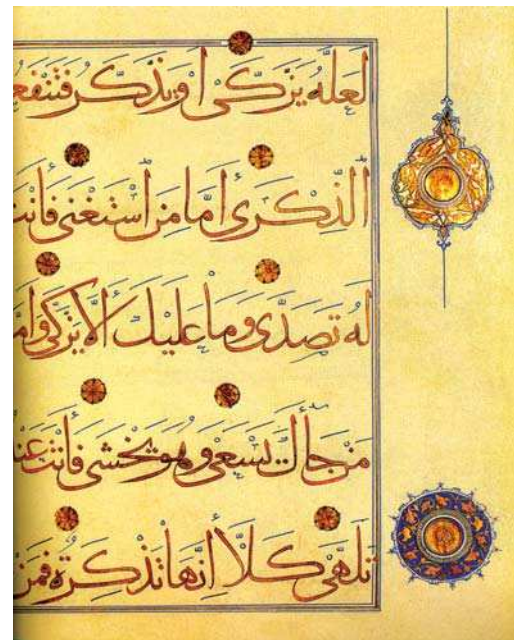 لَعَلَّهُ يَزَّكَّى أَوْ يَذَّكَّرُ فَتَنْفَعَ
الذِّكْرَى أَمَّا مَنِ اسْتَغْنَى فَأَنْتَ
لَهُ تَصَدَّى وَمَا عَلَيْكَ أَلَّا يَزَّكَّى وَأَمَّا
مَنْ جَاءَكَ يَسْعَى وَهُوَ يَخْشَى فَأَنْتَ عَنْهُ
تَلَهَّى كَلَّا إِنَّهَا تَذْكِرَةٌ فَمَنْ